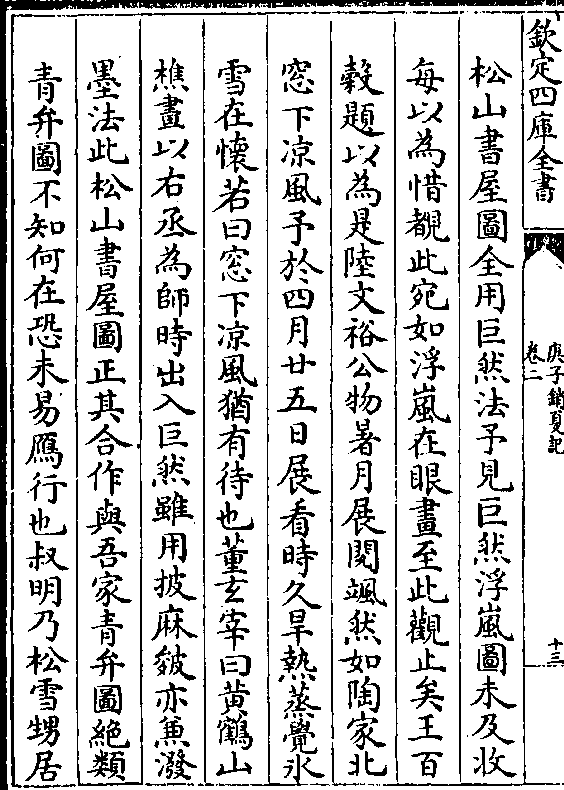 欽定四庫全書
庚子銷夏記
卷二
十三
松山書屋圖全用巨然法予見巨然浮嵐圖未及收
每以為惜覩此宛如浮嵐在眼畫至此觀止矣王百
穀題以為是陸文裕公物暑月展閱颯然如陶家北
窓下凉風予於四月廿五日展看時久旱熱蒸覺氷
雪在懷若曰窓下凉風猶有待也董玄宰曰黄鶴山
樵畫以右丞為師時出入巨然雖用披麻皴亦兼潑
墨法此松山書屋圖正其合作與吾家青弁圖絶類
青弁圖不知何在恐未易鴈行也叔明乃松雪甥居